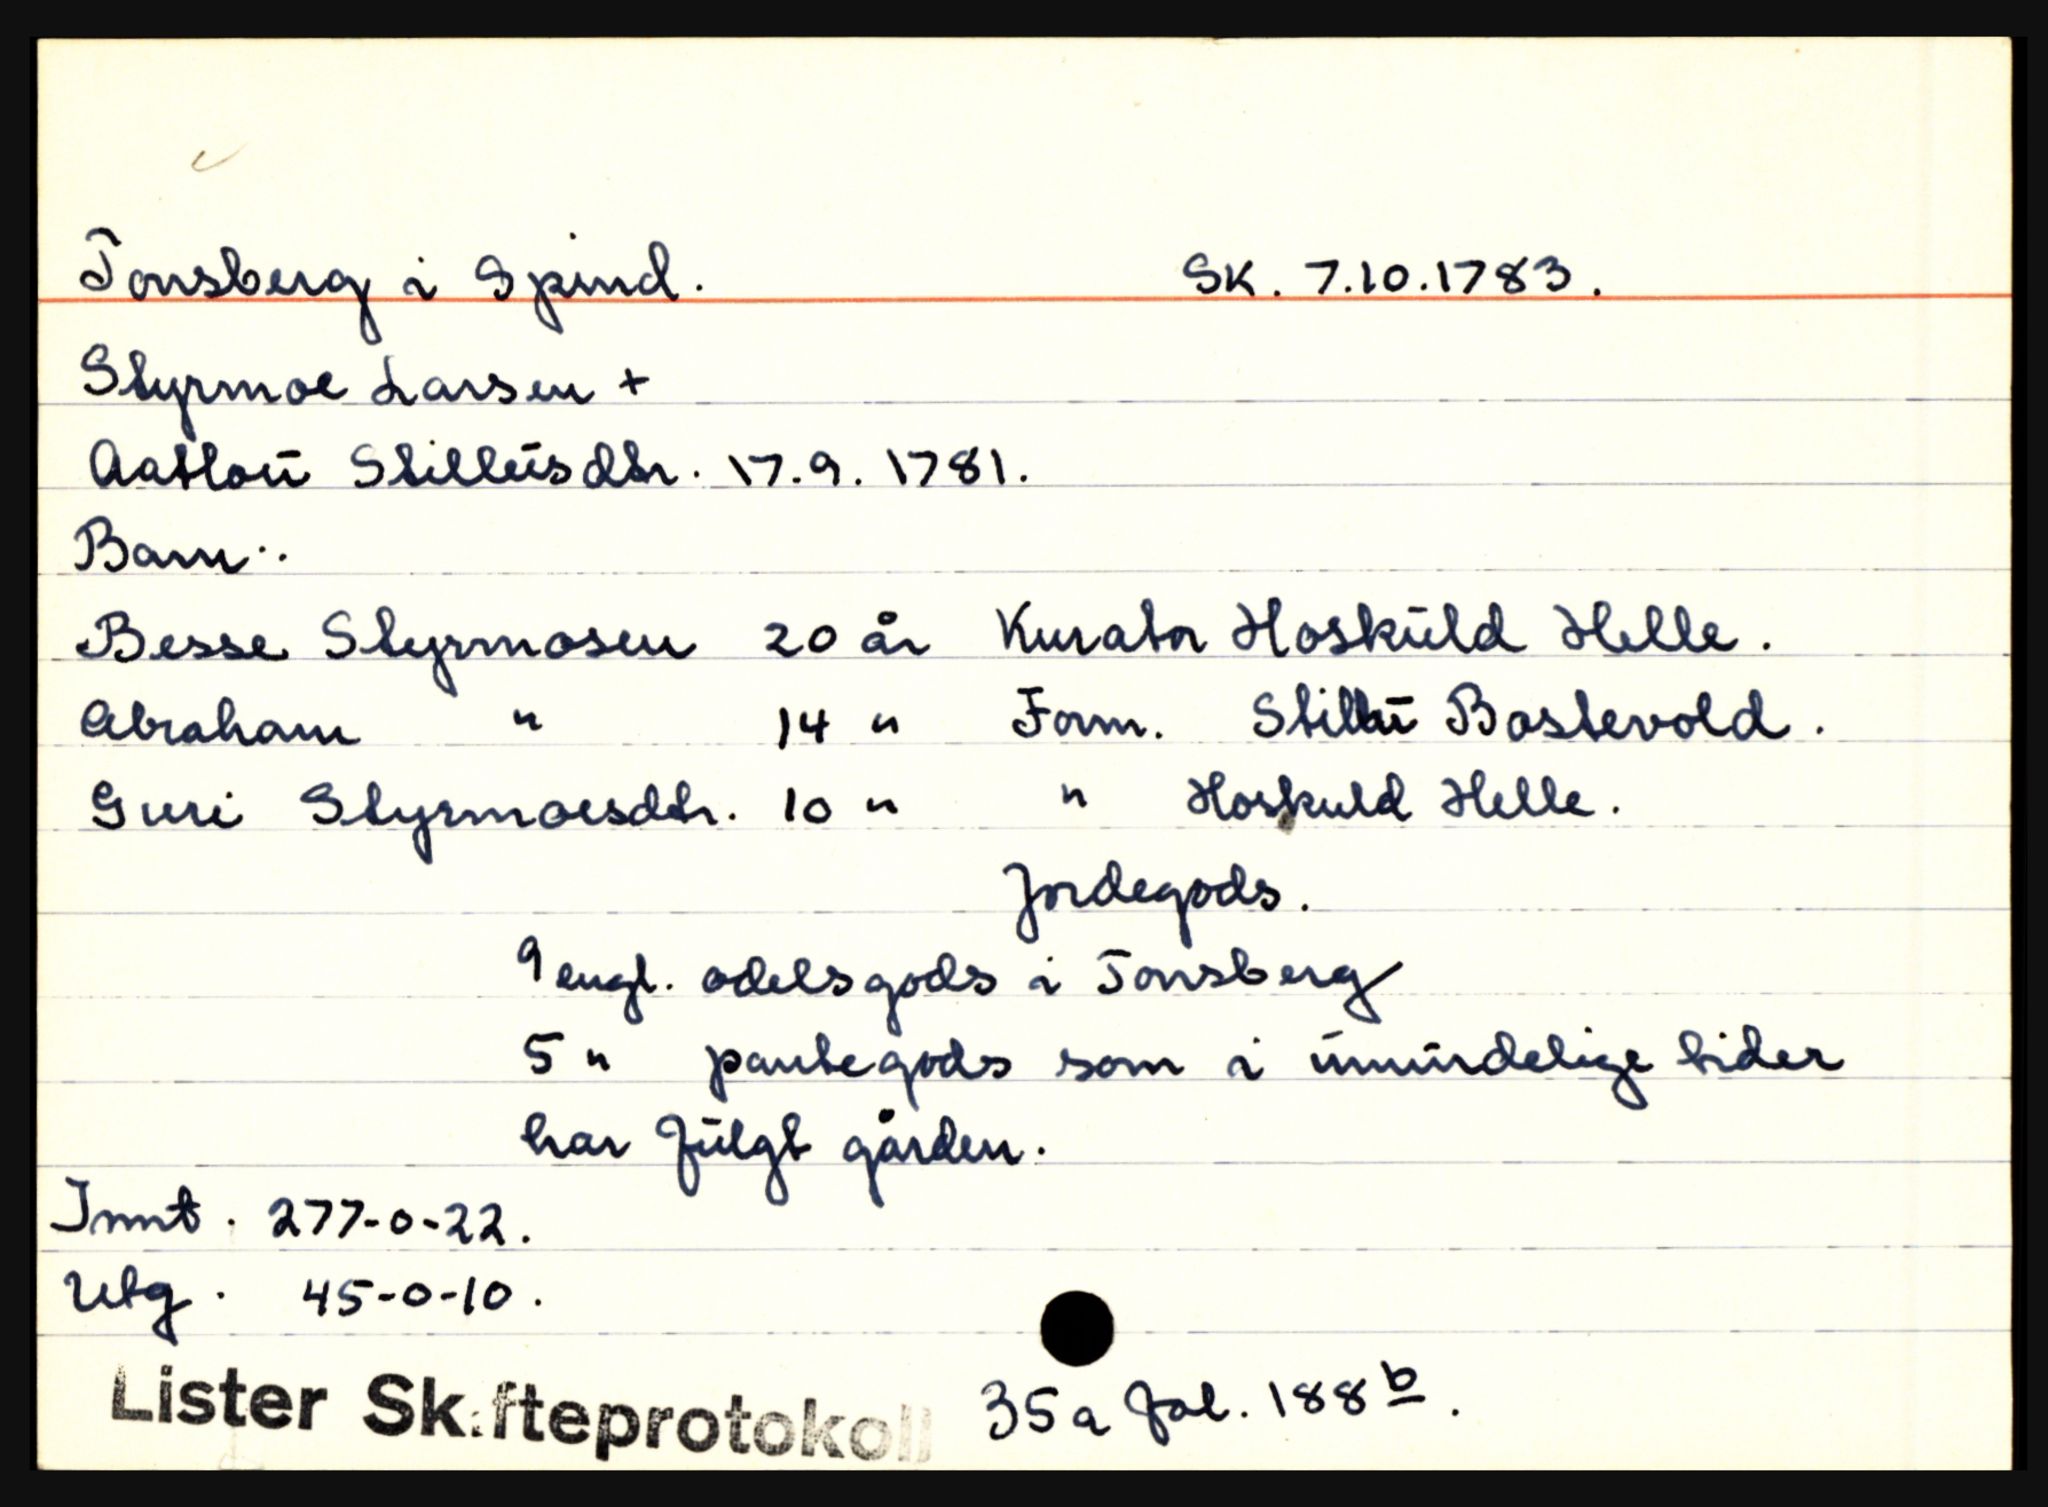 Tonsberg i Spind. SK. 7.10.1783.
Styrmoe Larsen +
Aatloū Stilleūsdtr. 17.9.1781.
Barn:
Besse Styrmosen 20 år Kurator Hoskūld Helle.
Abraham " 14 " Form. Stilleū Bostevold.
Guri Styrmoesdtr. 10 " " Hoskuld Helle.
Jordegods.
9 engl. odelsgods i Tonsberg
5 " pantegods som i ūmindelige tider
har fūlgt gården.
Innt. 277-0-22.
Utg. 45-0-10.
Lister Skifteprotokoll 35a fol. 188b.